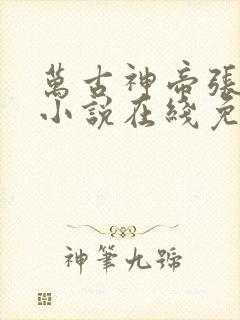 萬古神帝張
小說在綫免
神筆九號